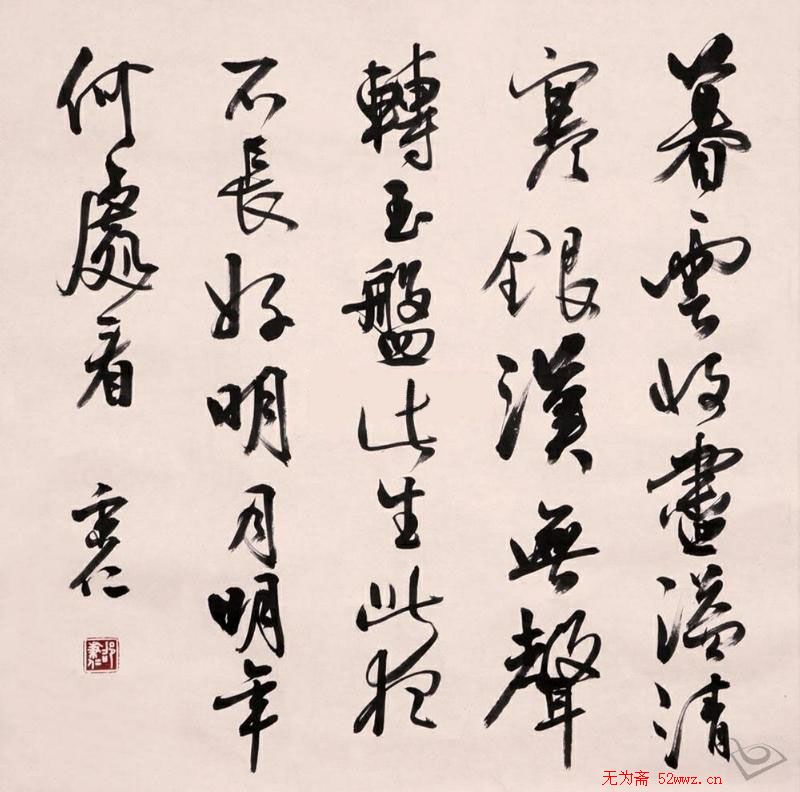 暮雲收盡溢清
寒銀漢無聲
轉玉盤此生此夜
不長好明月明年
何處看
秉仁
邵秉仁
无为斋 52wwz.cn